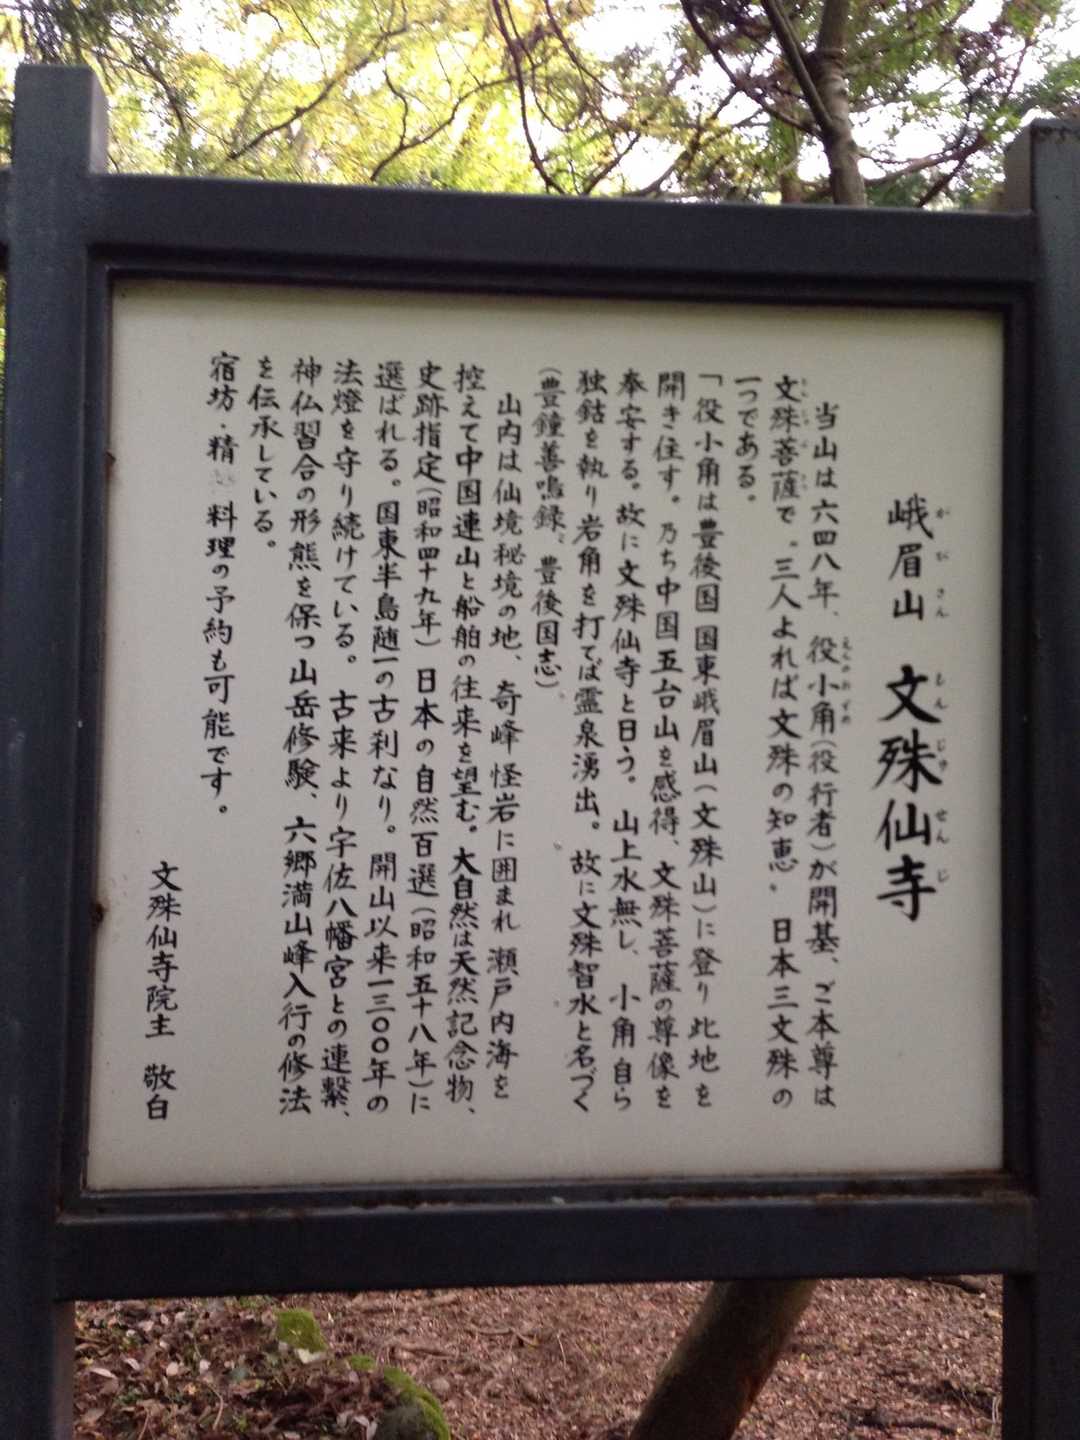 峨眉山 文殊仙寺
がびさん もんじゅせんじ
当山は六四八年、役小角(役行者)が開基、ご本尊は
えんのおずぬ
文殊菩薩で〝三人よれば文殊の知恵〟日本三文殊の
もんじゅぼさつ
一つである。
「役小角は豊後国国東峨眉山(文殊山)に登り此地を
開き住す。乃ち中国五台山を感得、文殊菩薩の尊像を
奉安する。故に文殊仙寺と曰う。山上水無し、小角自ら
独鈷を執り岩角を打てば霊泉湧出。故に文殊智水と名づく
(豊鐘善鳴録、豊後国志)
山内は仙境秘境の地、奇峰怪岩に囲まれ瀬戸内海を
控えて中国連山と船舶の往来を望む。大自然は天然記念物、
史跡指定(昭和四十九年)日本の自然百選(昭和五十八年)に
選ばれる。国東半島随一の古刹なり。開山以来一三〇〇年の
法燈を守り続けている。古来より宇佐八幡宮との連繋、
神仏習合の形熊を保つ山岳修験、六郷満山峰入行の修法
を伝承している。
宿坊・精 料理の予約も可能です。
文殊仙寺院主 敬白